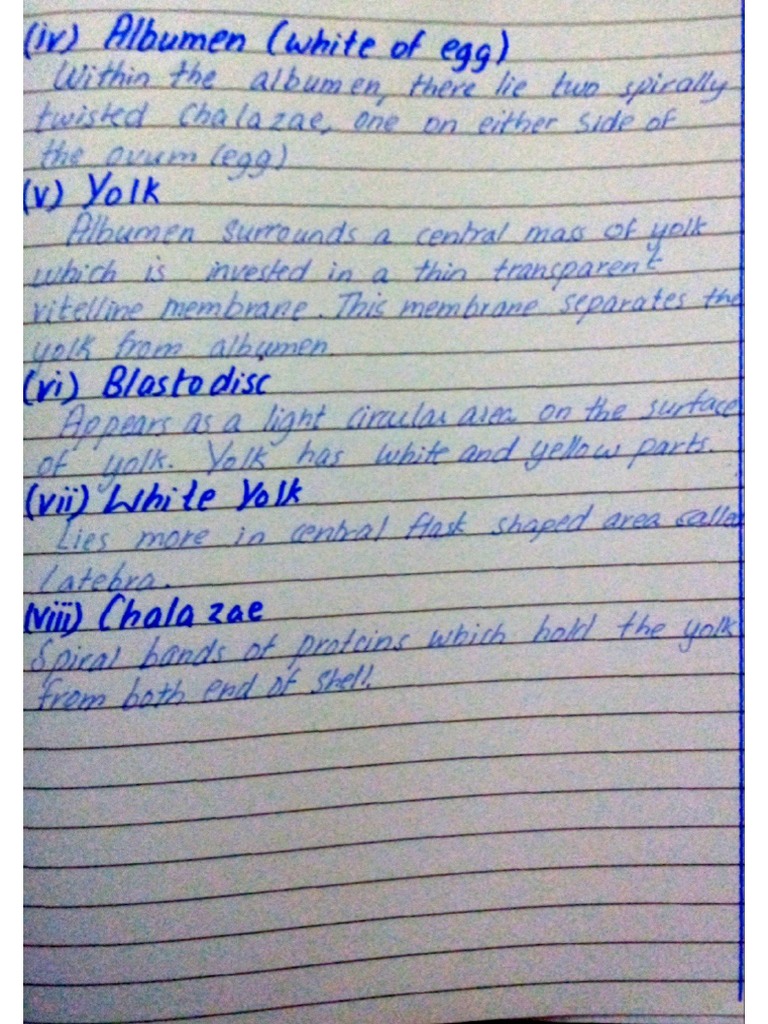 (iv) Albumen (white of egg)
Within the albumen, there lie two spirally
twisted Chalazae, one on either side of
the ovum (egg)
(v) Yolk
Albumen surrounds a central mass of yolk
which is invested in a thin transparent
vitelline membrane. This membrane separates the
yolk from albumen.
(vi) Blastodisc
Appears as a light circular area on the surface
of yolk. Yolk has white and yellow parts.
(vii) White Yolk
Lies more in central flask shaped area called
latebra.
(viii) Chalazae
Spiral bands of proteins which hold the yolk
from both end of shell.